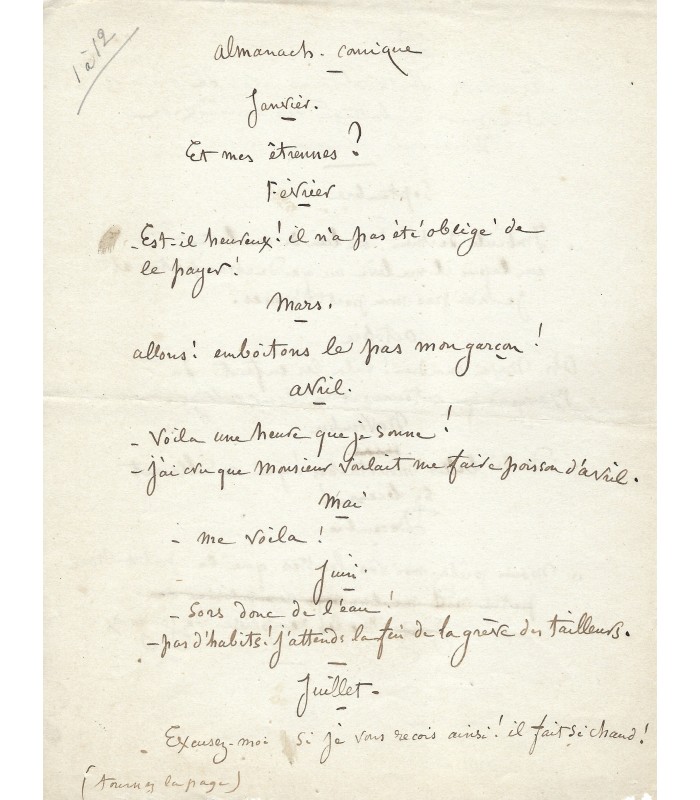 1 à 12
almanach - comique
Janvier.
Et mes êtrennes ?
Février
- Est-il heureux ! il n'a pas été obligé de
le payer !
Mars.
allons ! emboitons le pas mon garçon !
avril.
- Voila une heure que je sonne !
- j'ai cru que Monsieur voulait me faire poisson d'avril.
Mai
- me voila !
Juin.
- Sors donc de l'eau !
- pas d'habits ! j'attends la fin de la grève des tailleurs.
Juillet -
Excusez-moi si je vous recois ainsi ! il fait si chaud !
(tournez la page)